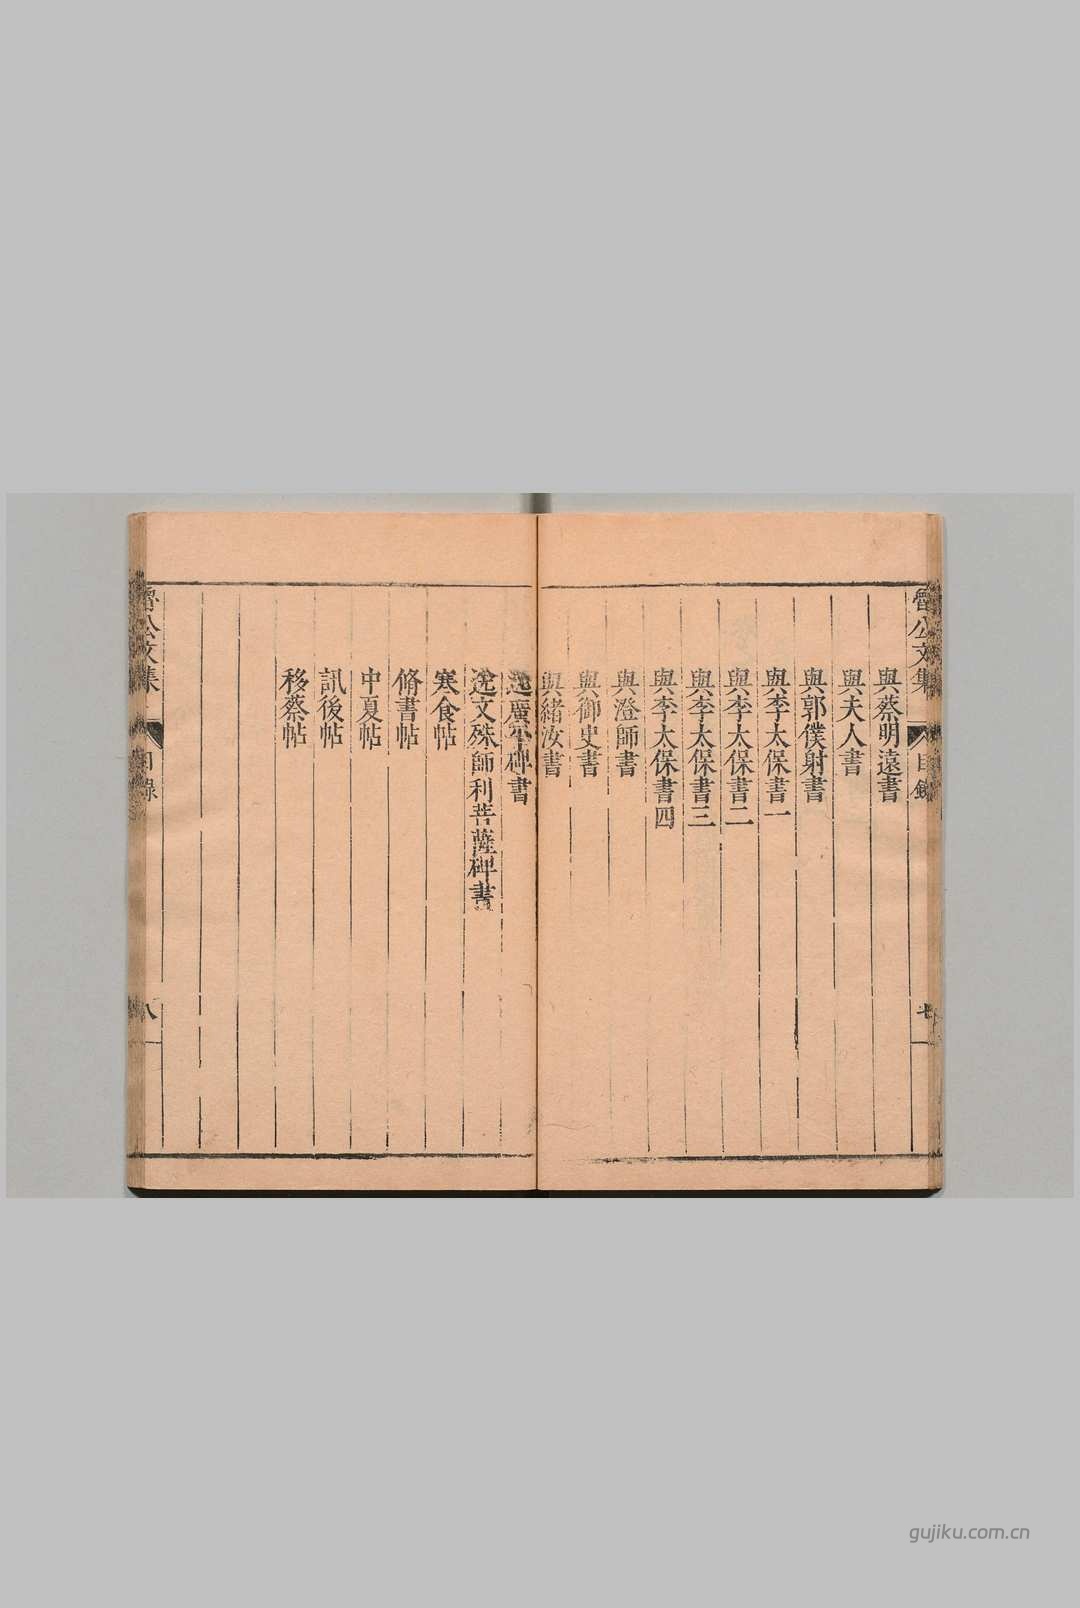 魯公文集 目錄 七
與蔡明遠書
與夫人書
與郭僕射書
與李太保書一
與李太保書二
與李太保書三
與李太保書四
與澄師書
與御史書
與緒汝書
廣平碑書
文殊師利菩薩碑書
寒食帖
脩書帖
中夏帖
訊後帖
移蔡帖
魯公文集 目錄 八
gujiku.com.cn